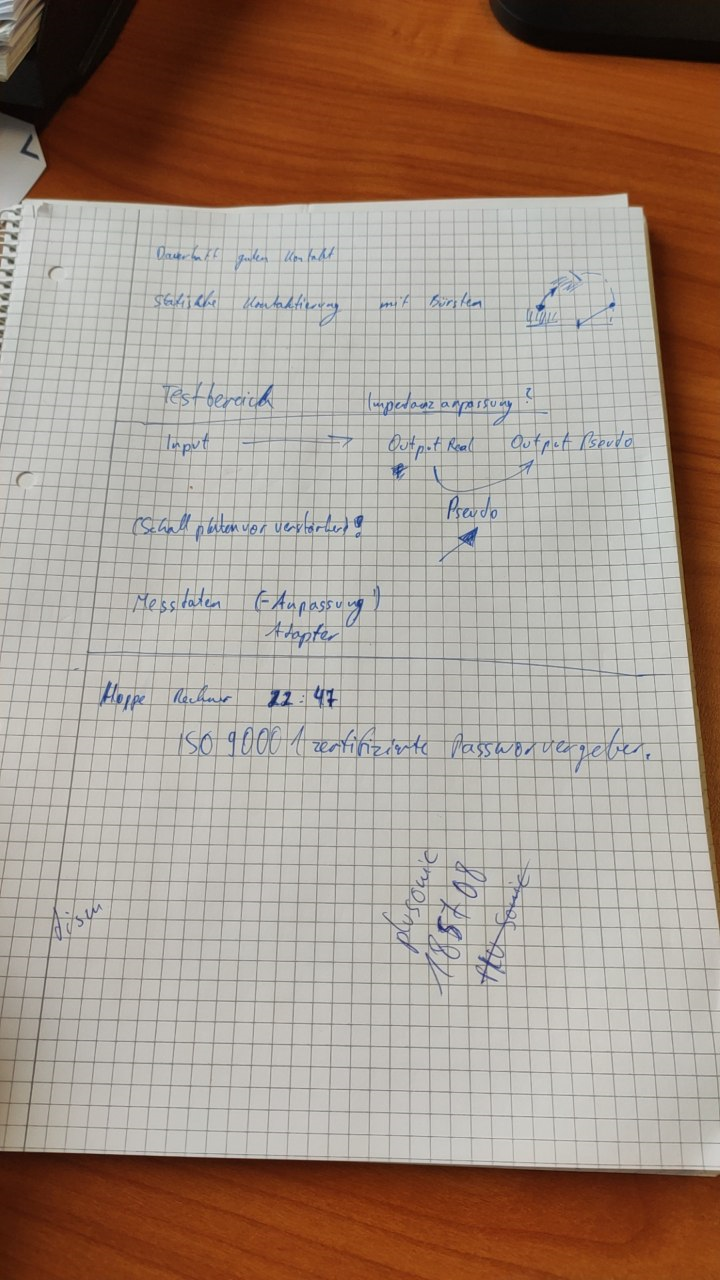 Dauerhaft guten Kontakt
Statische Kontaktierung mit Bürsten
Testbereich Impedanzanpassung?
Input Output Real Output Pseudo
Pseudo
(Schallplattenvorverstärker)!
Messdaten (-Anpassung)
Adapter
Hoppe Rechner 22:47
ISO 9000 1 zertifizierte Passworvergeber.
plusonic
185708
Sonic